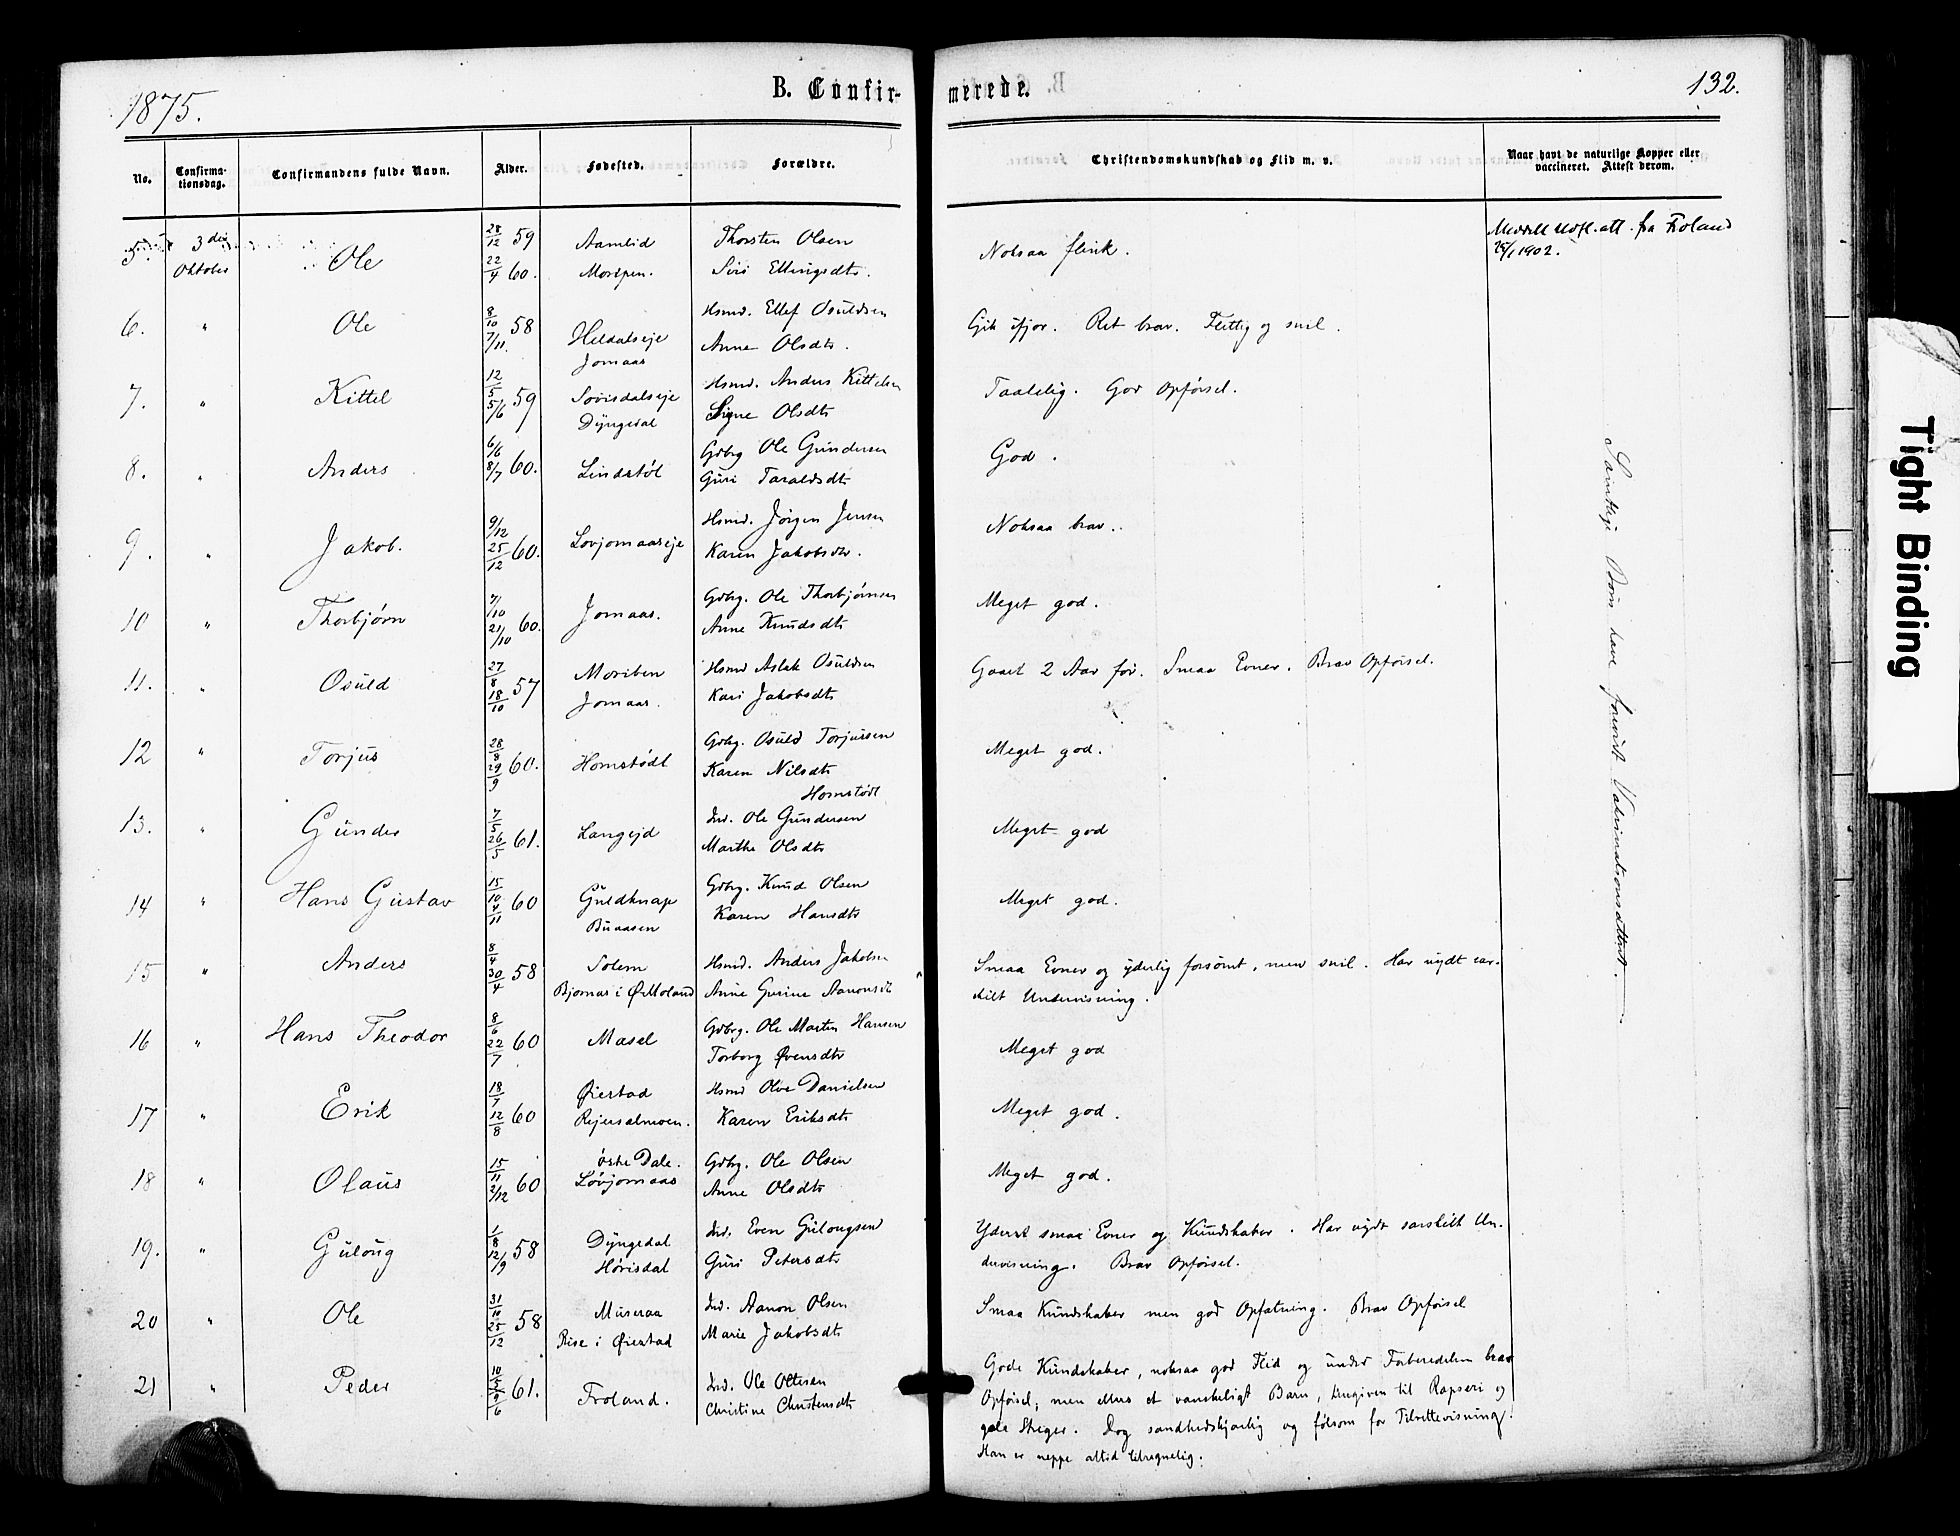 1875.
B. Confirmerede.
132.
No.
Confirmationsdag.
Confirmandens fulde Navn.
Alder.
Fødested.
Forældre.
Christendomskundskab og Flid m. v.
Naar havt de naturlige Kopper eller vaccineret. Attest derom.
5. 3die Oktober Ole 28/12 59 22/4 60. Aamlid Thorsten Olsen Siri Ellingsdtr. Noksaa flink. Meddelt Udfl. att. fra Froland 25/1 1902.
6. " Ole 8/10 58 7/11. Heldalseje Jomaas Hsmd. Ellef Osuldsen Anne Olsdtr. Gik ifjor. Ret brav. Flittig og snil.
7. " Kittel 12/5 59 5/6 Sørisdalseje Dyngedal Hsmd. Anders Kittelsen Signe Olsdtr Taalelig. God Opførsel.
8. " Anders 6/6 8/7 60. Lindstøl Gdbrg Ole Gundersen Guri Taraldsdtr God.
9. " Jakob. 9/12 25/12 60. Lovjomaaseje Hsmd. Jørgen Jensen Karen Jakobsdtr. Noksaa brav.
10 " Thorbjørn 21/10 60. Jomaas. Gdbrg. Ole Thorbjørnsen Anne Knudsdtr Meget god.
11. " Osuld 27/8 18/10 57 Moriben Jomaas. Hsmd Aslak Osuldsen Kari Jakobsdtr Gaaet 2 Aar før. Smaa Evner. Brav Opførsel.
12 " Torjus 28/8 29/9 60. Homstødl Gdbg. Osuld Torjussen Karen Nilsdtr Homstødl Meget god.
13. " Gunder 7/5 26/5 61. Langejd Ind. Ole Gundersen Marthe Olsdtr Meget god
14 " Hans Gustav 15/10 4/11 60 Guldknap Buaasen Gdbrg. Knud Olsen Karen Hansdtr Meget god.
15 " Anders 8/4 30/4 58 Solem Bjornas i Ø Moland Hsmd. Anders Jakobsen Anne Gurine Aanonsdtr Smaa Evner og yderlig forsømt, men snil. Har nydt særskilt Undervisning.
16 " Hans Theodor 8/6 22/7 60 Mæsel Gdbrg. Ole Martin Hansen Torborg Øvensdtr Meget god
17 " Erik 18/7 12/8 60 Øiestad Rejersølmoen. Hsmd Olve Danielsen Karen Eriksdtr Meget god.
18 " Olaus 15/11 2/12 60 østre Dale. Løvjomaas Gdbg. Ole Olsen Anne Olsdtr Meget god.
19. " Guloug 1/8 12/9 58 Dyngedal Hørisdal Ind. Even Gulougsen Guri Petersdtr Yderst smaa Evner og Kundskaber. Har nydt særskilt Undervisning. Brav Opførsel.
20 " Ole 31/10 25/12 58 Museraa Rise i Øiestad Ind. Aanon Olsen Marie Jakobsdtr Smaa Kundskaber men god Opfatning. Brav Opførsel
21 " Peder 61. Froland. Ind. Ole Oltesen Christine Christensdtr Gode Kundskaber, noksaa god Flid og under Forberedelsen brav
Opførsel; men ellers et vanskeligt Barn, hengiven til Rapseri og
gale Streger. Dog sandhedskjærlig og følsom for Tilrettevisning.
Han er neppe altid tilregnelig.
Samtlige Børn have forevist Vakcinationsattest.
Tight Binding